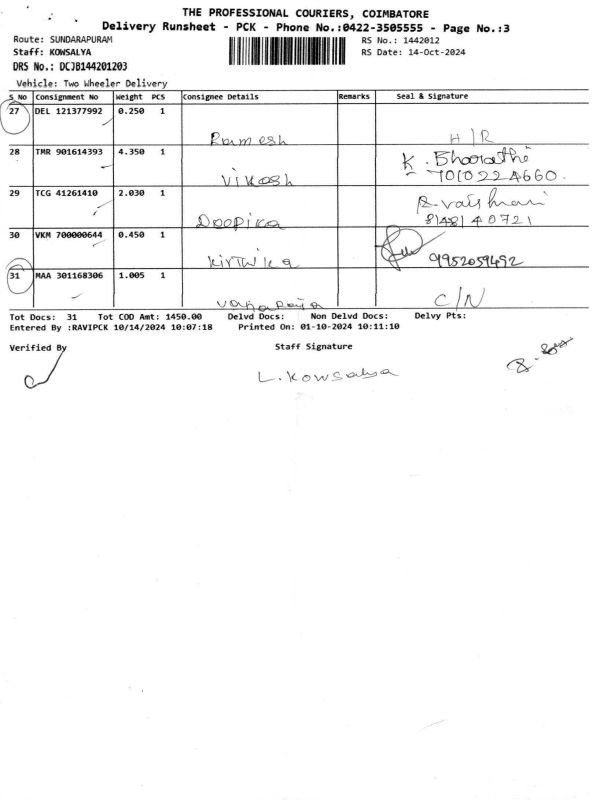 THE PROFESSIONAL COURIERS, COIMBATORE
Delivery Runsheet - PCK - Phone No.:0422-3505555 - Page No.:3
Route: SUNDARAPURAM
RS No.: 1442012
Staff: KOWSALYA
RS Date: 14-Oct-2024
DRS No.: DCJB144201203
Vehicle: Two Wheeler Delivery
S No Consignment No Weight PCS Consignee Details Remarks Seal & Signature
27 DEL 121377992 0.250 1
Ramesh H/R
28 TMR 901614393 4.350 1 K. Bharathi
Vikash 7010224660.
29 TCG 41261410 2.030 1 R. Vaishnavi
Deepika 8148140721
30 VKM 700000644 0.450 1
Kirthika 9952059492
31 MAA 301168306 1.005 1 C/N
Tot Docs: 31 Tot COD Amt: 1450.00 Delvd Docs: Non Delvd Docs: Delvy Pts:
Entered By :RAVIPCK 10/14/2024 10:07:18 Printed On: 01-10-2024 10:11:10
Verified By Staff Signature
L. Kowsalya